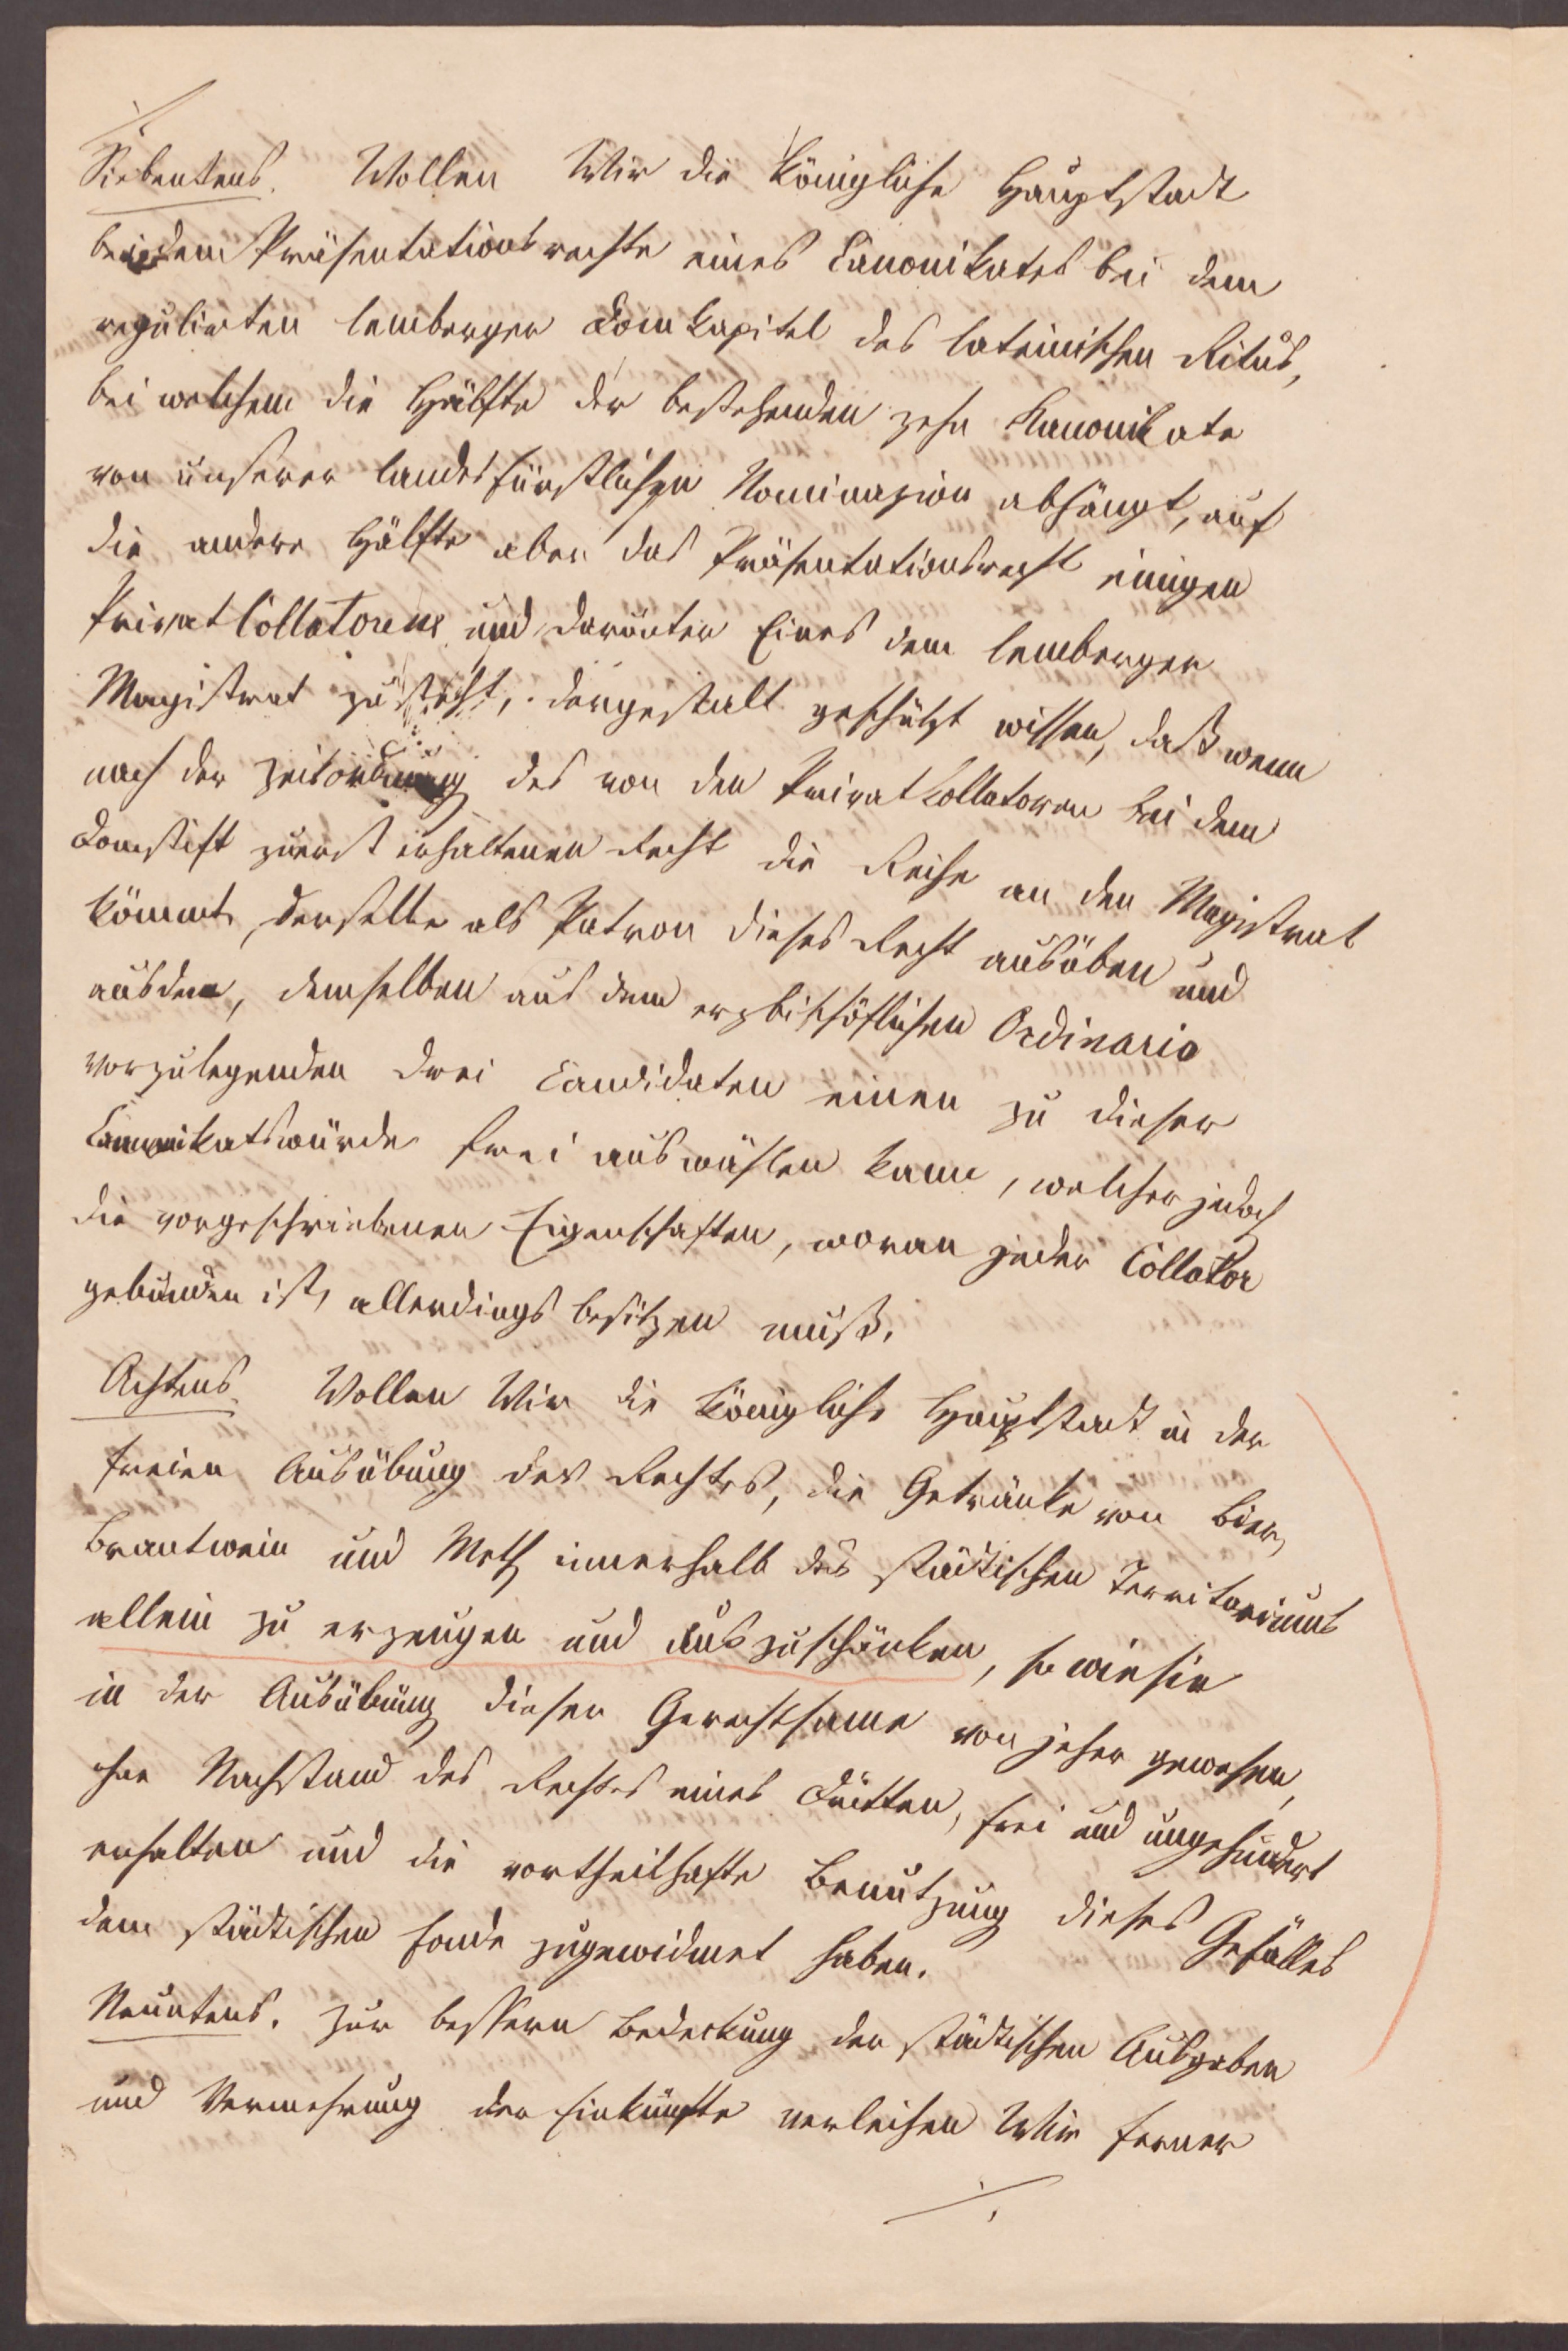 Siebentens. Wollen Wir die Königliche Hauptstadt
bei dem Präsentationsrechte eines Canonikates bei dem
regulirten lemberger Domkapitel des lateinischen Ritus,
bei welchem die Hälfte der bestehenden zehn Kanonikate
von unserer landesfürstlichen Nominazion abhängt, auf
die andere Hälfte aber das Präsentationsrecht einigen
Privat Collatoren und darunter Eines dem lemberger
Magistrat zusteht, dergestalt geschützt wissen, daß wenn
nach der Zeitordnung des von den Privat Collatoren bei dem
Domstift zuerst erhaltenen Recht die Reihe an den Magistrat
kömmt, derselbe als Patron dieses Recht ausüben und
aus den, demselben aus dem erzbischöflichen Ordinario
vorzulegenden drei Candidaten einen zu dieser
Canonikatswürde frei auswählen kann, welcher jedoch
die vorgeschriebenen Eigenschaften, woran jeder Collator
gebunden ist, allerdings besitzen muß.
Achtens. Wollen Wir die Königliche Hauptstadt in der
freien Ausübung des Rechtes, die Getränke von Bier,
Brantwein und Meth innerhalb des städtischen Territoriums
allein zu erzeugen und auszuschänken, so wie sie
in der Ausübung dieser Gerechtsame von jeher gewesen,
ohne Nachstand des Rechtes eines Dritten, frei und ungehindert
erhalten und die vortheilhafte Benützung dieses Gefälles
dem städtischen Fonde zugewidmet haben.
Neuntens. Zur bessern Bedeckung der städtischen Ausgaben
und Vermehrung der Einkünfte verleihen Wir ferner
./.